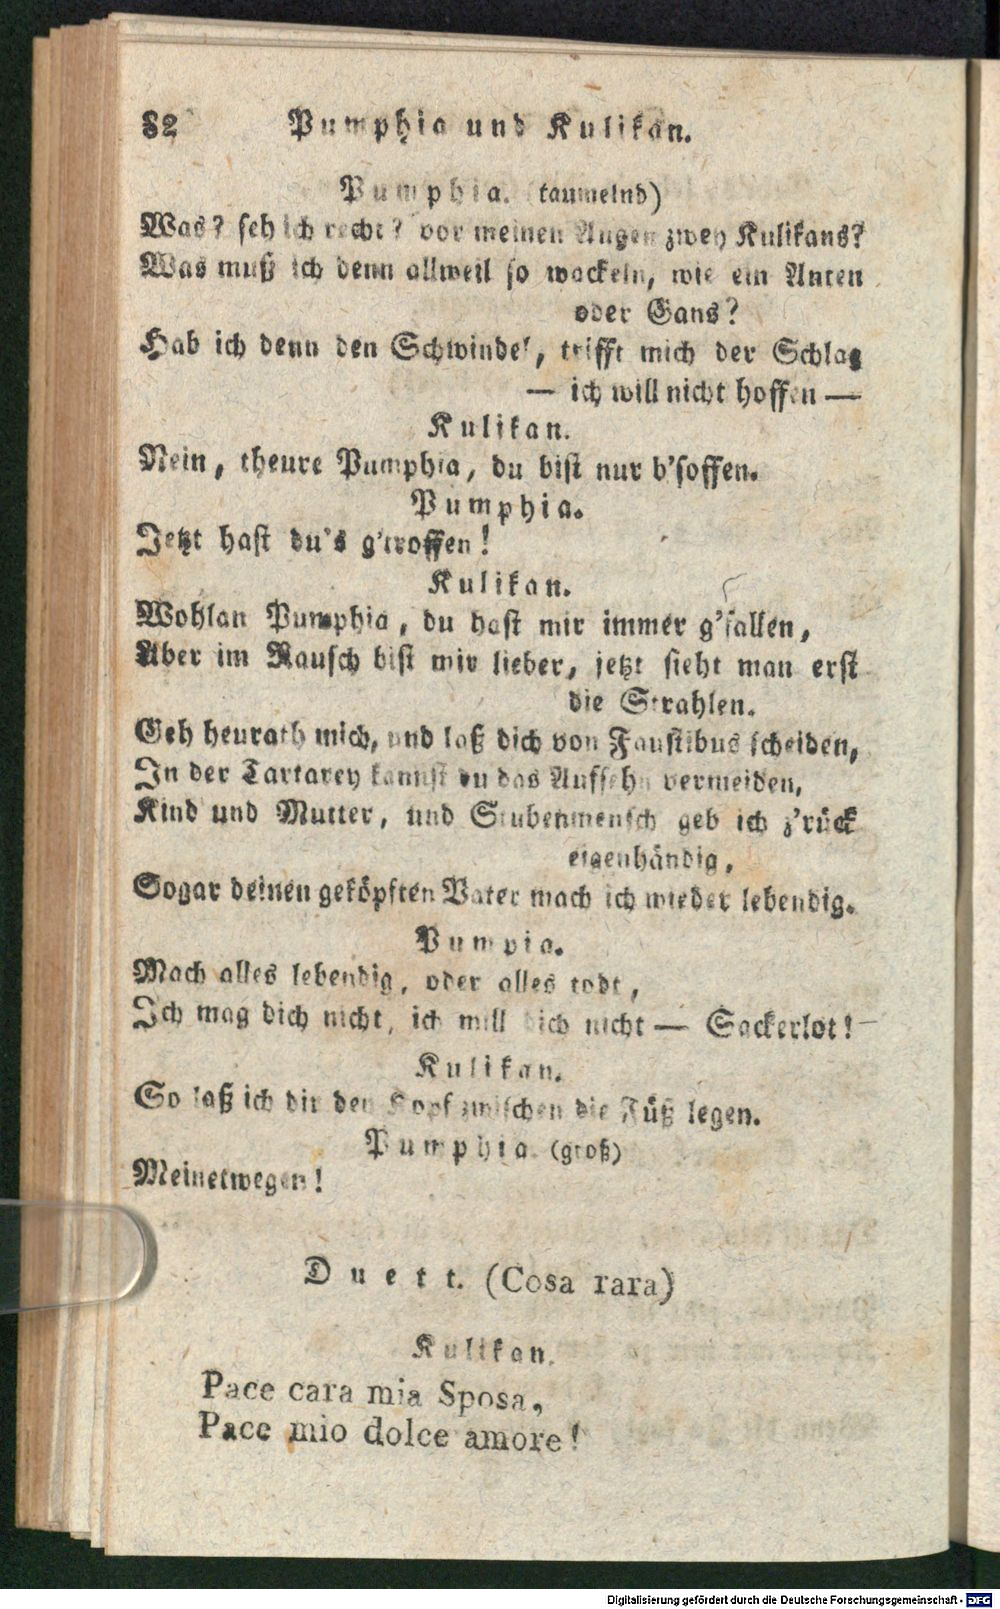 82 Pumphia und Kulikan.
Pumphia. (taumelnd)
Was? seh ich recht? vor meinen Augen zwey Kulikans?
Was muß ich denn allweil so wackeln, wie ein Anten
oder Gans?
Hab ich denn den Schwindel, trifft mich der Schlag
— ich will nicht hoffen —
Kulikan.
Nein, theure Pumphia, du bist nur b'soffen.
Pumphia.
Jetzt hast du's g'troffen!
Kulikan.
Wohlan Pumphia, du hast mir immer g'fallen,
Aber im Rausch bist mir lieber, jetzt sieht man erst
die Strahlen.
Geh heurath mich, und laß dich von Faustibus scheiden,
In der Tartarey kannst du das Aufsehn vermeiden,
Kind und Mutter, und Stubenmensch geb ich z'rück
eigenhändig,
Sogar deinen geköpften Vater mach ich wieder lebendig.
Pumpia.
Mach alles lebendig, oder alles todt,
Ich mag dich nicht, ich will dich nicht — Sackerlot!
Kulikan.
So laß ich dir den Kopf zwischen die Füß legen.
Pumphia. (groß)
Meinetwegen!
Duett. (Cosa rara)
Kulikan.
Pace cara mia Sposa,
Pace mio dolce amore!
Digitalisierung gefördert durch die Deutsche Forschungsgemeinschaft - DFG